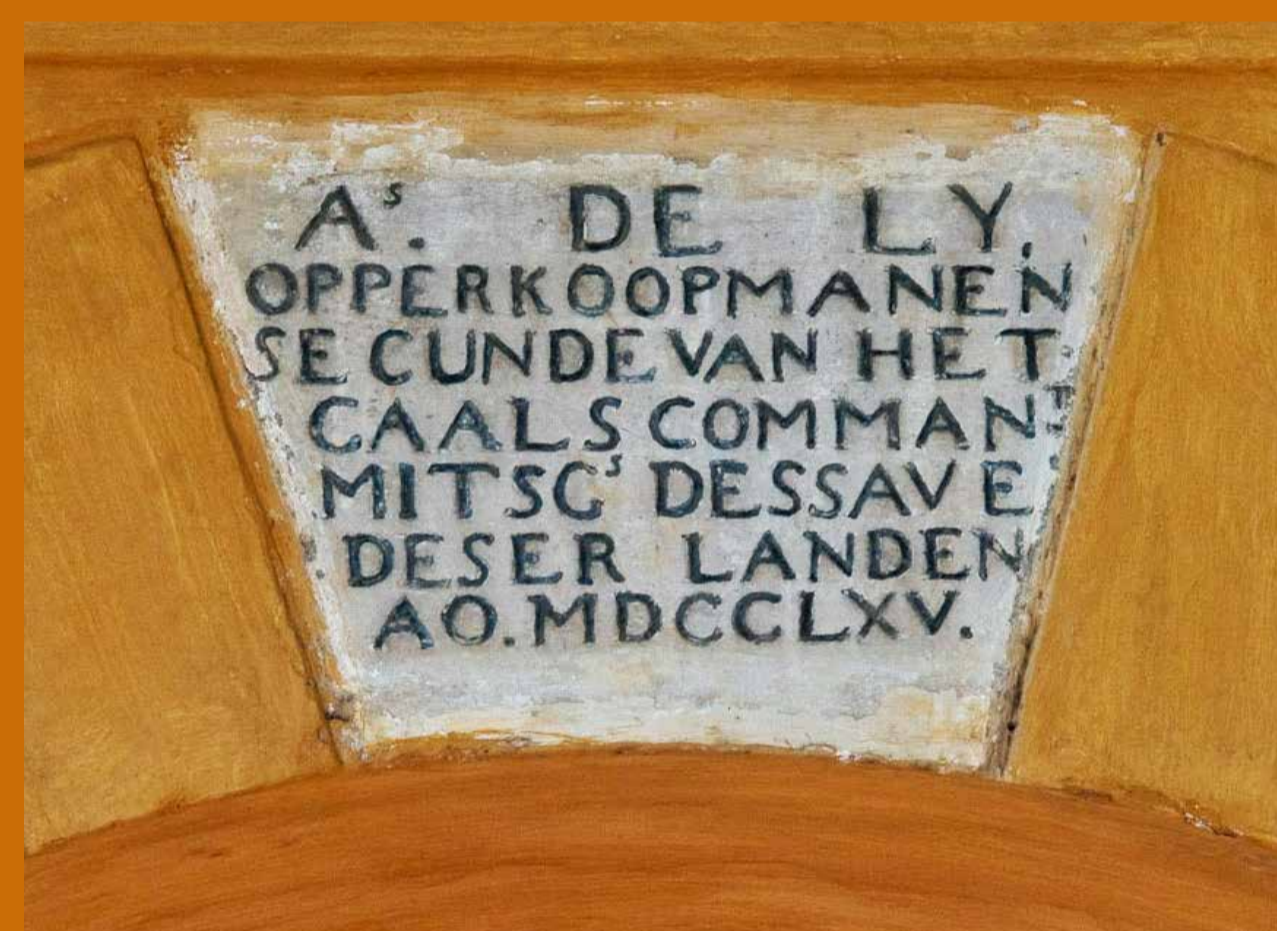 Aˢ. DE LY.
OPPERKOOPMAN EN
SECUNDE VAN HET
GAALS COMMAN:ᵀ
MITSGˢ DESSAVE
DESER LANDEN
AO. MDCCLXV.